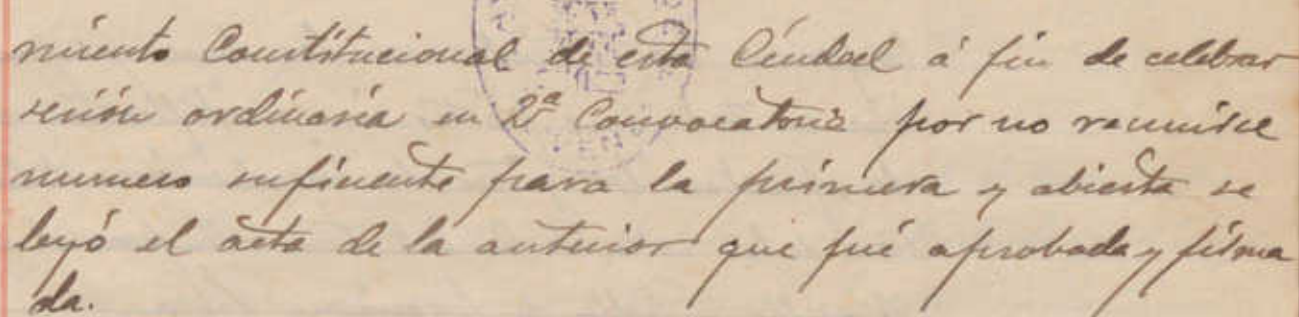 miento Constitucional de esta Ciudad á fin de celebrar
sesión ordinaria en 2ª Convocatoria por no reunirse
numero suficiente para la primera y abierta se
leyó el acta de la anterior que fué aprobada y firma
da.